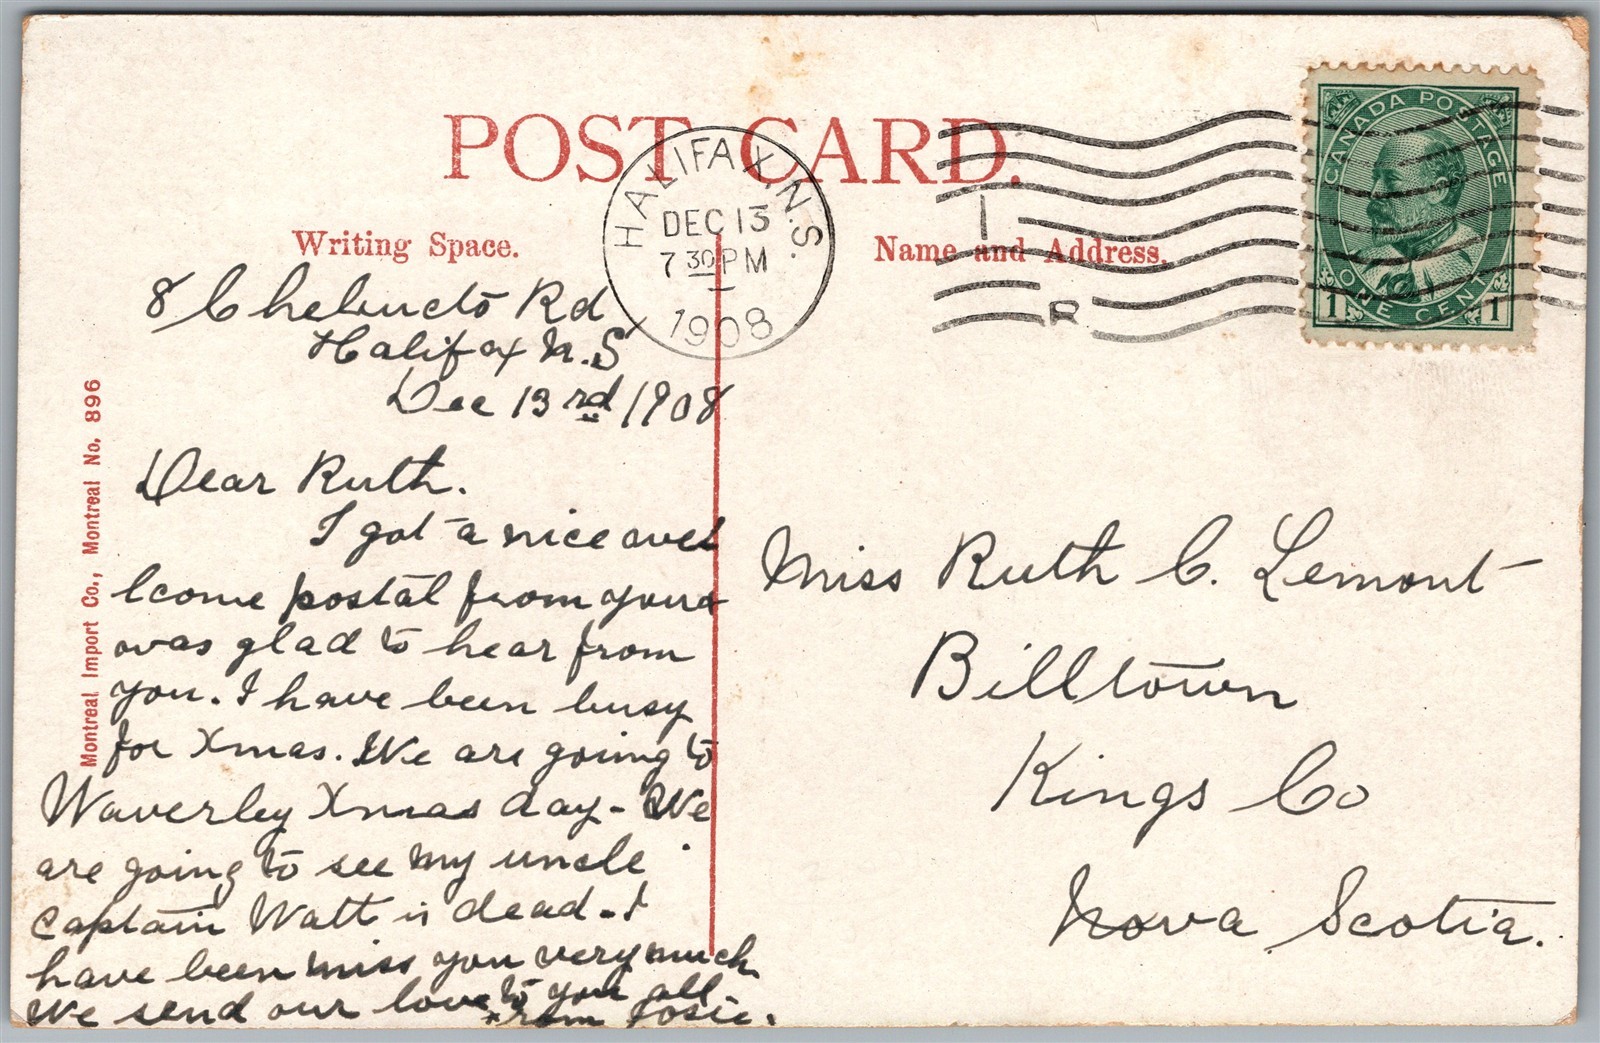 POST CARD.
HALIFAX, N.S.
DEC 13
7 30 PM
1908
CANADA POSTAGE
1 ONE CENT 1
I
R
Writing Space.
Name and Address.
8 Chebucto Rd
Halifax N.S
Dec 13rd 1908
Dear Ruth.
I got a nice a wel
lcome postal from you a
was glad to hear from
you. I have been busy
for Xmas. We are going to
Waverley Xmas day - We
are going to see my uncle
Captain Watt is dead. I
have been miss you very much
We send our love to you all
from Josie.
Miss Ruth C. Lemont
Billtown
Kings Co
Nova Scotia.
Montreal Import Co., Montreal No. 896